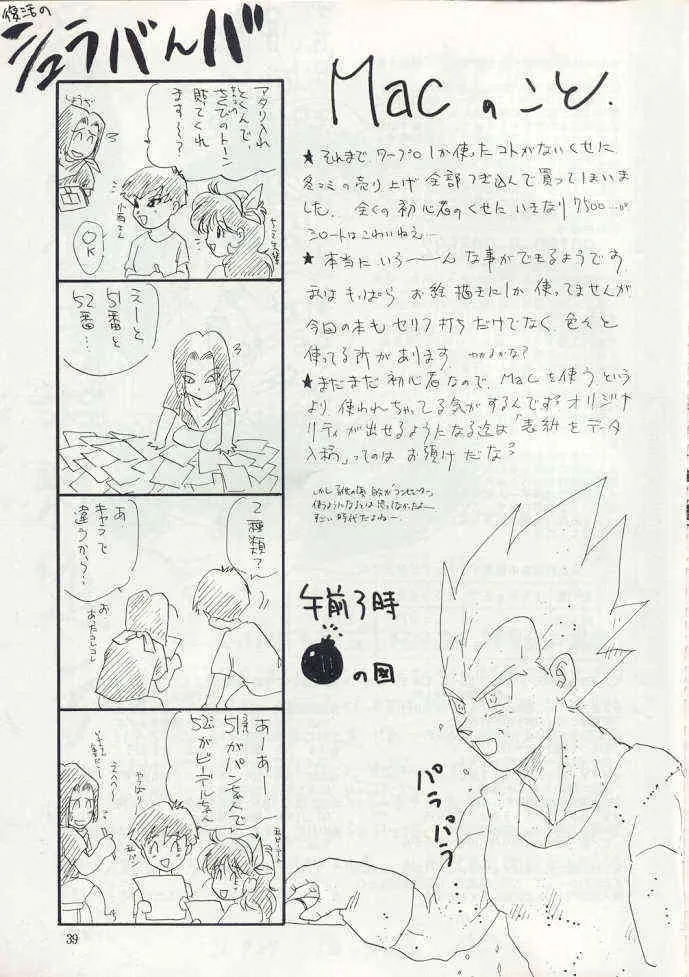 復活の
シュラバんバ
アタリ入れ
とくんで、
のトーン
貼てくれ
ます〜?
OK
えーと
51番と
52番…
2種類?
あ、
キャラで
違うから?
お
あったコレコレ
あーあー
51がパンちゃんで
52がビーデルちゃん
やっぱり
えへへー
Macのこと.
★それまで、ワープロしか使ったコトがないくせに、
冬コミの売り上げ全部つぎ込んで買ってしまいま
した。全くの初心者のくせにいきなり7500…。
シロートはこわいねえ…
★本当にいろ〜〜んな事ができるようです。
私はもっぱらお絵描きにしか使ってませんが、
今回の本もセリフ打ちだけでなく、色々と
使ってる所があります。わかるかな?
★まだまだ初心者なので、Macを使うという
より使われちゃってる気がするんです。オリジナ
リティが出せるようになる迄は「表紙をデータ
入稿」ってのはお預けだな?
すごい時代だよねー。
午前3時
の図
パラパラ
39